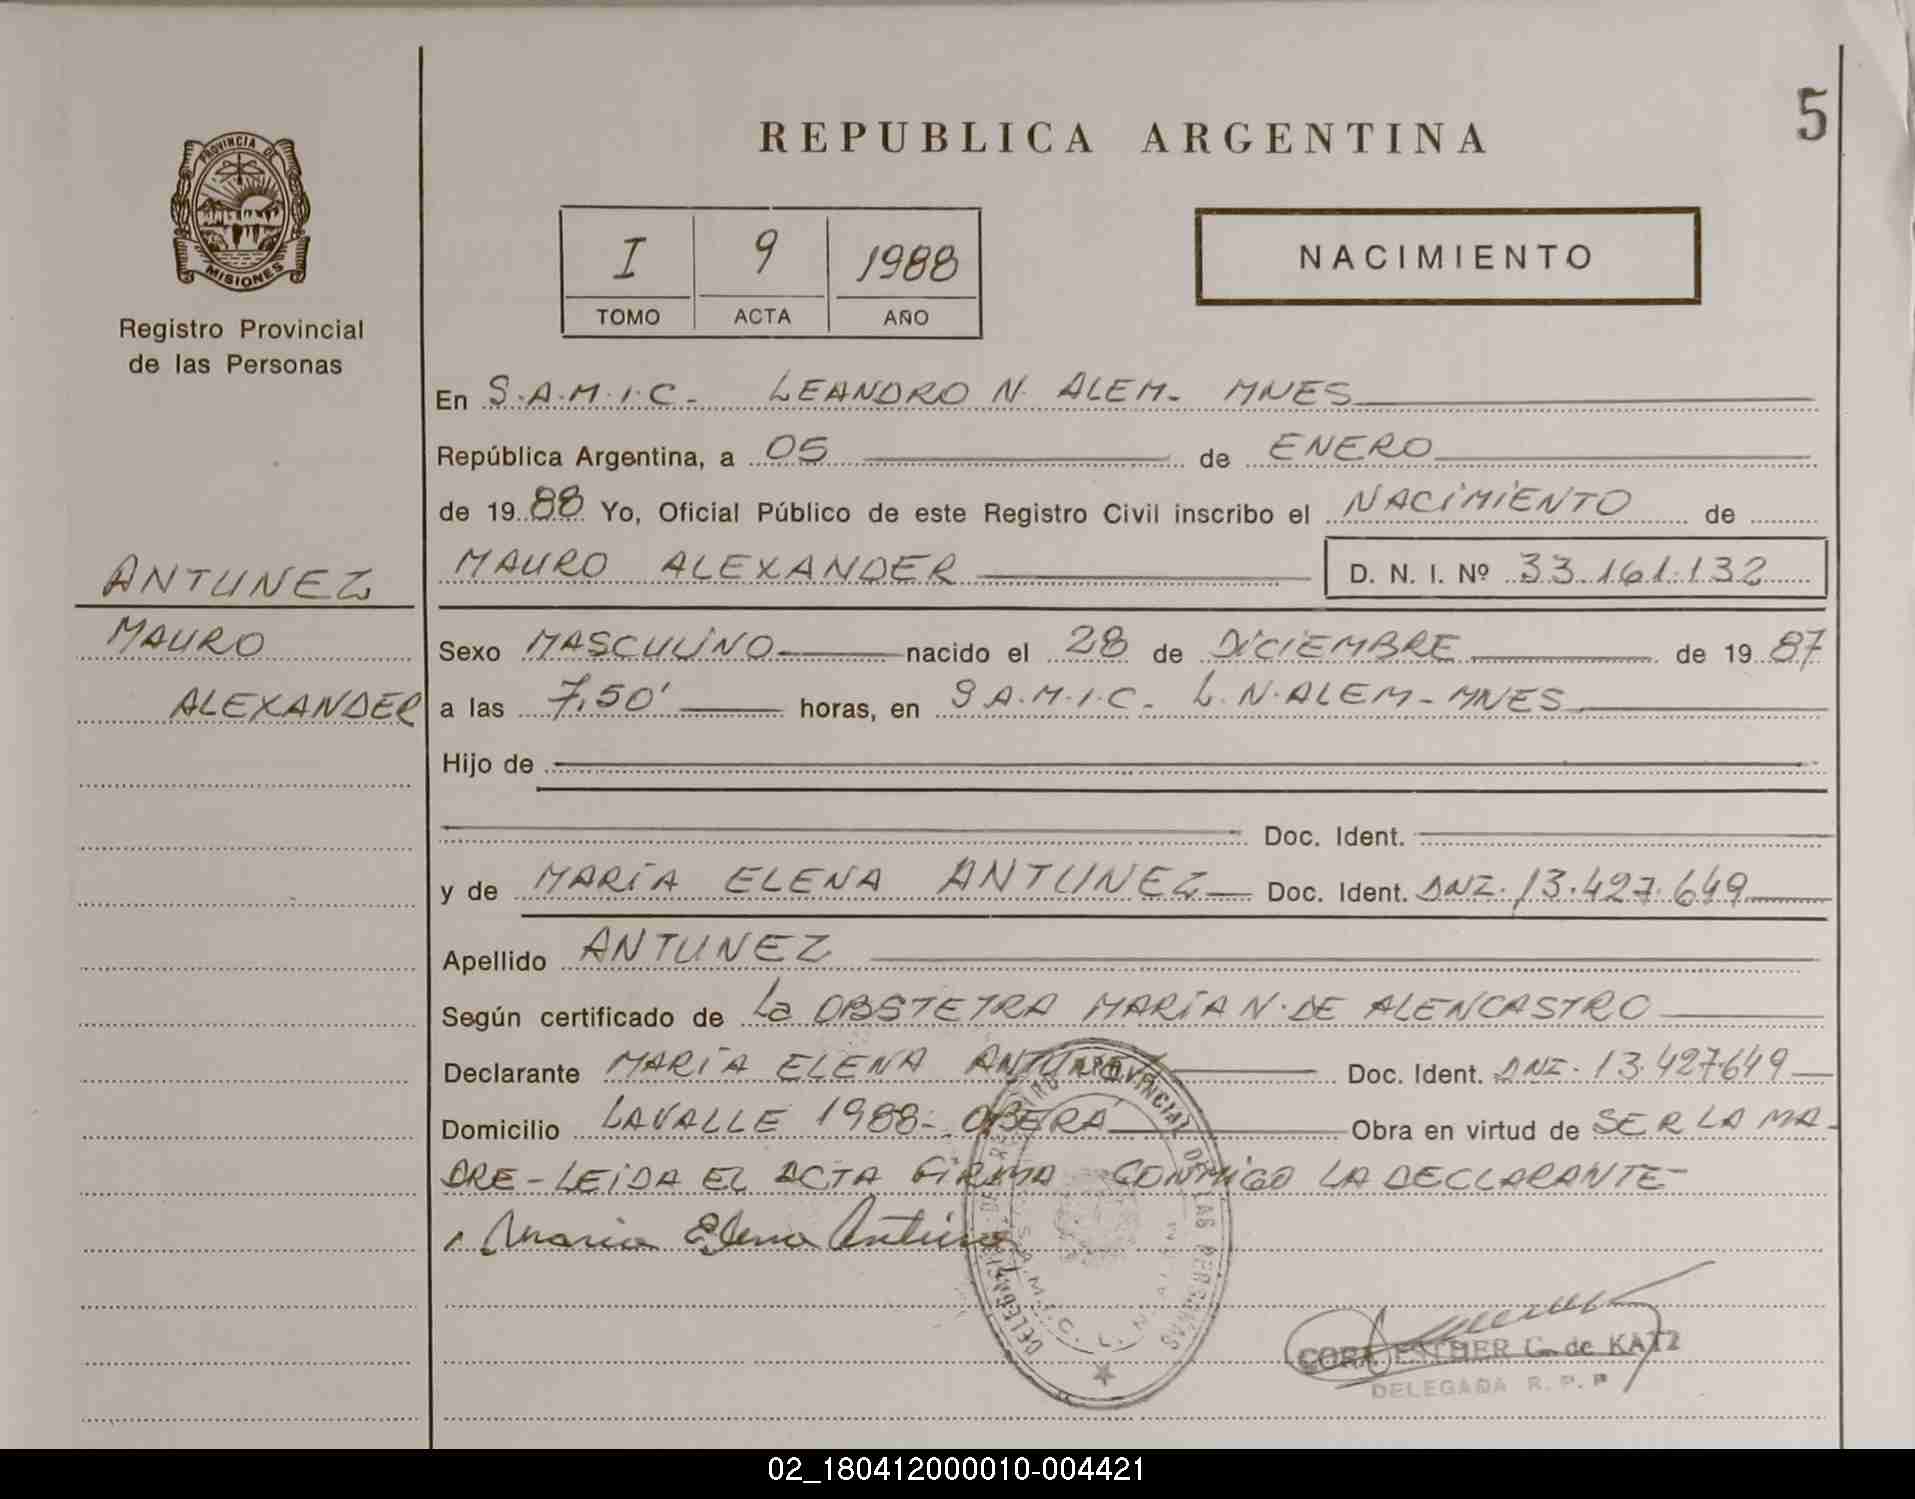 PROVINCIA DE
MISIONES
Registro Provincial
de las Personas
ANTUNEZ
MAURO
ALEXANDER
REPUBLICA ARGENTINA
5
I 9 1988
TOMO ACTA AÑO
NACIMIENTO
En S.A.M.I.C. - LEANDRO N. ALEM - MNES
República Argentina, a 05 de ENERO
de 1988 Yo, Oficial Público de este Registro Civil inscribo el NACIMIENTO de
MAURO ALEXANDER D. N. I. Nº 33.161.132
Sexo MASCULINO nacido el 28 de DICIEMBRE de 1987
a las 7,50' horas, en S.A.M.I.C. - L.N. ALEM - MNES
Hijo de
Doc. Ident.
y de MARIA ELENA ANTUNEZ Doc. Ident. DNI. 13.427.649
Apellido ANTUNEZ
Según certificado de La OBSTETRA MARIA N. DE ALENCASTRO
Declarante MARIA ELENA ANTUNEZ Doc. Ident. DNI. 13.427649
Domicilio LAVALLE 1988 - OBERÁ Obra en virtud de SER LA MA-
DRE - LEIDA EL ACTA FIRMA CONMIGO LA DECLARANTE -
Maria Elena Antunez
DELEGACION DE REGISTRO PROVINCIAL DE LAS PERSONAS
S.A.M.I.C. L. N. ALEM
CORA ESTHER G. de KATZ
DELEGADA R. P. P
02_180412000010-004421